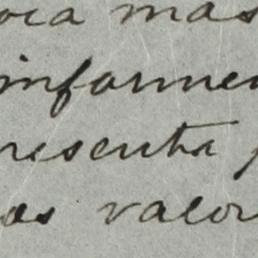 oca mas
informen
resenta p
os valor